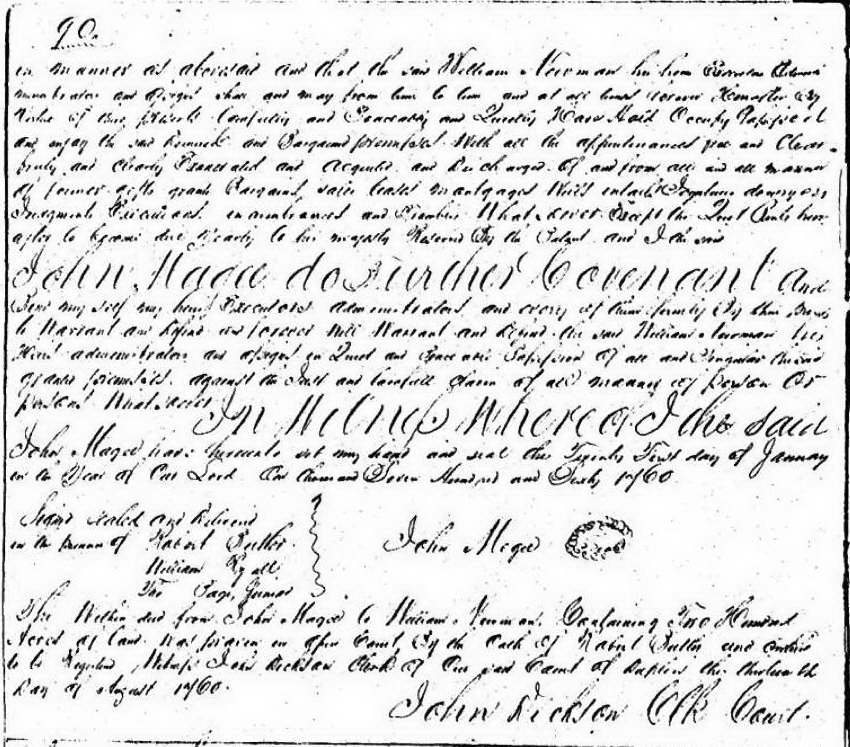 90.
in manner as aforesaid and that the said William Newman his heirs Executors Admini
ministrators and assigns shall and may from time to time and at all times forever Hereafter By
Virtue of these presents Lawfully and Peaceably and Quietly Have Hold Occupy Possess
and enjoy the said Demised and Bargained premises With all the appurtenances free and Clear
freely and clearly Exonerated and acquitted and discharged of and from all and all manner
of former gifts grants Bargains sales leases mortgages Wills entails dowrys
Judgments Executions incumbrances and Whatsoever Except the Quit Rents here
after to become due Yearly to his majesty Reserved By the Patent and I the said
John Magee do Further Covenant and
Bind my self my heirs Executors administrators and every of them firmly By these
to Warrant and defend and forever Will Warrant and defend the said William Newman his
Heirs administrators and assigns in Quiet and peaceable Possession of all and Singular the said
granted premises against the Just and lawfull claim of all manner of person or
persons Whatsoever In Witness Whereof I the said
John Magee have hereunto set my hand and seal this Twenty First day of January
in the Year of Our Lord One thousand Seven Hundred and Sixty 1760
Signd sealed and Deliverd
in the presence of Robert Butler
William Ryall
Tho Page Junior
John Magee Seal
The Within deed from John Magee to William Newman Containing Two Hundred
Acres of land Was proven in open Court By the Oath of Robert Butler and ordered
to be Registered Witness John Dickson Clerk of Our said Court of Duplin this
Day of August 1760.
John Dickson Clk Court.